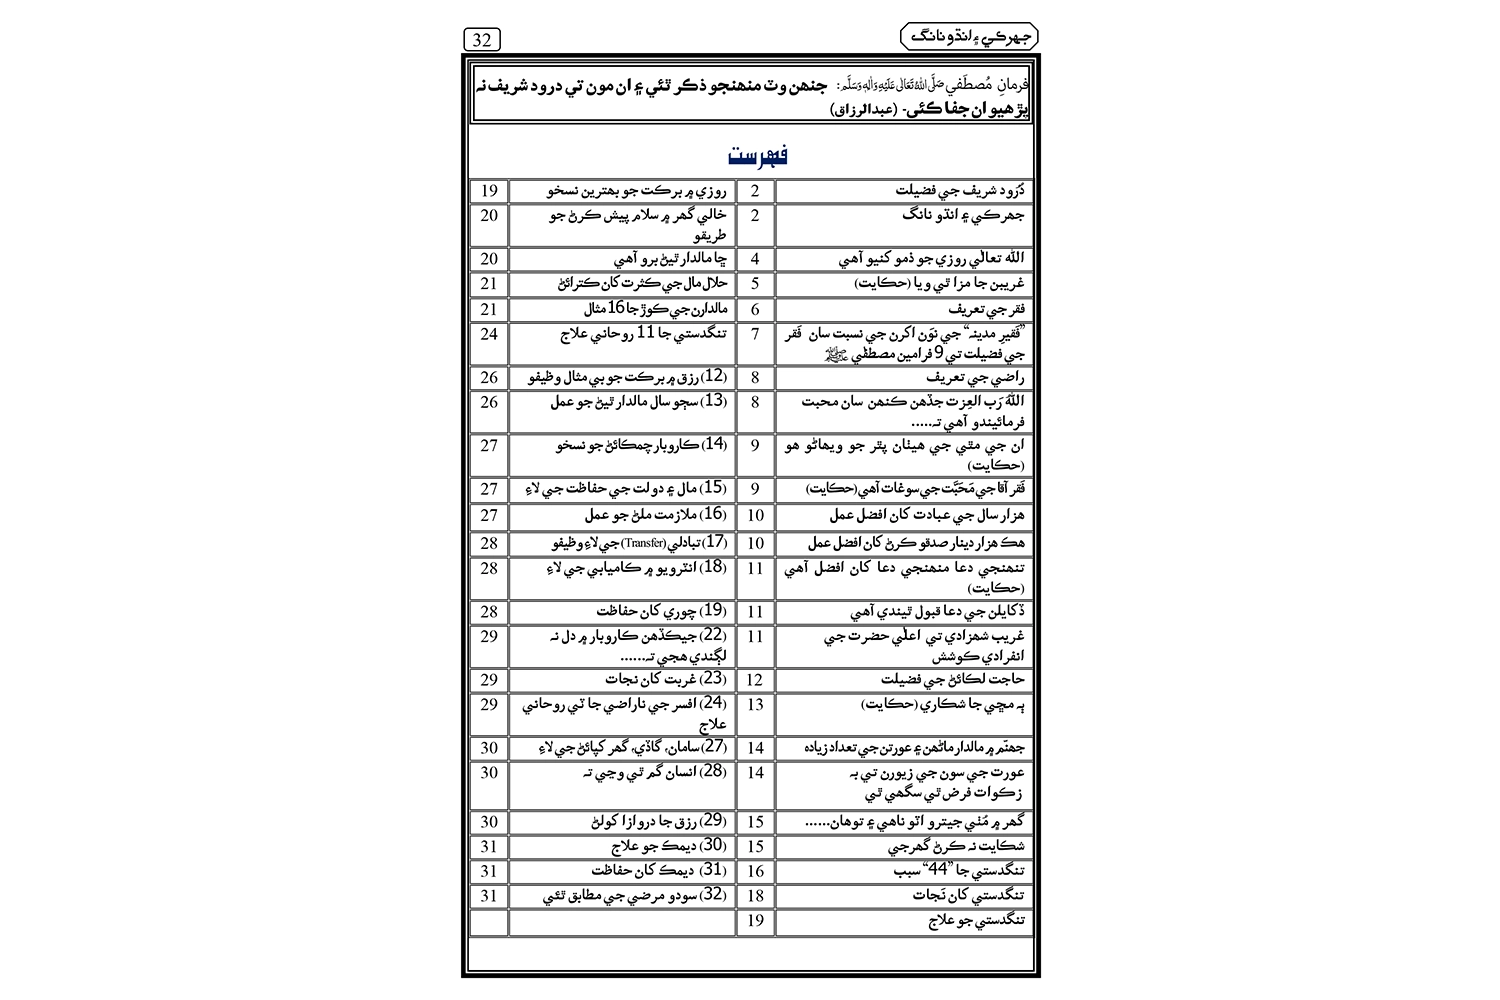 جهرڪي ۽ انڌو نانگ
32
فرمانِ مُصطَفي صَلَّى اللهُ تَعَالٰى عَلَيْهِ وَاٰلِهٖ وَسَلَّم: جنهن وٽ منهنجو ذڪر ٿئي ۽ ان مون تي درود شريف نہ
پڙهيو ان جفا ڪئي- (عبدالرزاق)
فهرست
دُرود شريف جي فضيلت 2 روزي ۾ برڪت جو بهترين نسخو 19
جهرڪي ۽ انڌو نانگ 2 خالي گهر ۾ سلام پيش ڪرڻ جو 20
طريقو
الله تعالٰي روزي جو ذمو کنيو آهي 4 ڇا مالدار ٿيڻ برو آهي 20
غريبن جا مزا ٿي ويا (حڪايت) 5 حلال مال جي ڪثرت کان ڪترائڻ 21
فقر جي تعريف 6 مالدارن جي ڪوڙ جا 16 مثال 21
”فَقيرِ مدينہ“ جي نوَن اکرن جي نسبت سان فَقر 7 تنگدستي جا 11 روحاني علاج 24
جي فضيلت تي 9 فرامين مصطفٰي ﷺ
راضي جي تعريف 8 (12) رزق ۾ برڪت جو بي مثال وظيفو 26
اللهُ رَب العِزت جڏهن ڪنهن سان محبت 8 (13) سڄو سال مالدار ٿيڻ جو عمل 26
فرمائيندو آهي تہ.....
ان جي مٿي جي هيٺان پٿر جو ويهاڻو هو 9 (14) ڪاروبار چمڪائڻ جو نسخو 27
(حڪايت)
فَقر آقا جي مَحَبَّت جي سوغات آهي (حڪايت) 9 (15) مال ۽ دولت جي حفاظت جي لاءِ 27
هزار سال جي عبادت کان افضل عمل 10 (16) ملازمت ملڻ جو عمل 27
هڪ هزار دينار صدقو ڪرڻ کان افضل عمل 10 (17) تبادلي (Transfer) جي لاءِ وظيفو 28
تنهنجي دعا منهنجي دعا کان افضل آهي 11 (18) انٽرويو ۾ ڪاميابي جي لاءِ 28
(حڪايت)
ڏکايلن جي دعا قبول ٿيندي آهي 11 (19) چوري کان حفاظت 28
غريب شهزادي تي اعلٰي حضرت جي 11 (22) جيڪڏهن ڪاروبار ۾ دل نہ 29
انفرادي ڪوشش
لڳندي هجي تہ......
حاجت لڪائڻ جي فضيلت 12 (23) غربت کان نجات 29
ٻہ مڇي جا شڪاري (حڪايت) 13 (24) افسر جي ناراضي جا ٽي روحاني 29
علاج
جهنّم ۾ مالدار ماڻهن ۽ عورتن جي تعداد زيادہ 14 (27) سامان، گاڏي، گهر کپائڻ جي لاءِ 30
عورت جي سون جي زيورن تي بہ 14 (28) انسان گم ٿي وڃي تہ 30
زڪوات فرض ٿي سگهي ٿي
گهر ۾ مُٺي جيترو اٽو ناهي ۽ توهان...... 15 (29) رزق جا دروازا کولڻ 30
شڪايت نہ ڪرڻ گهرجي 15 (30) ديمڪ جو علاج 31
تنگدستي جا ”44“ سبب 16 (31) ديمڪ کان حفاظت 31
تنگدستي کان نَجات 18 (32) سودو مرضي جي مطابق ٿئي 31
تنگدستي جو علاج 19